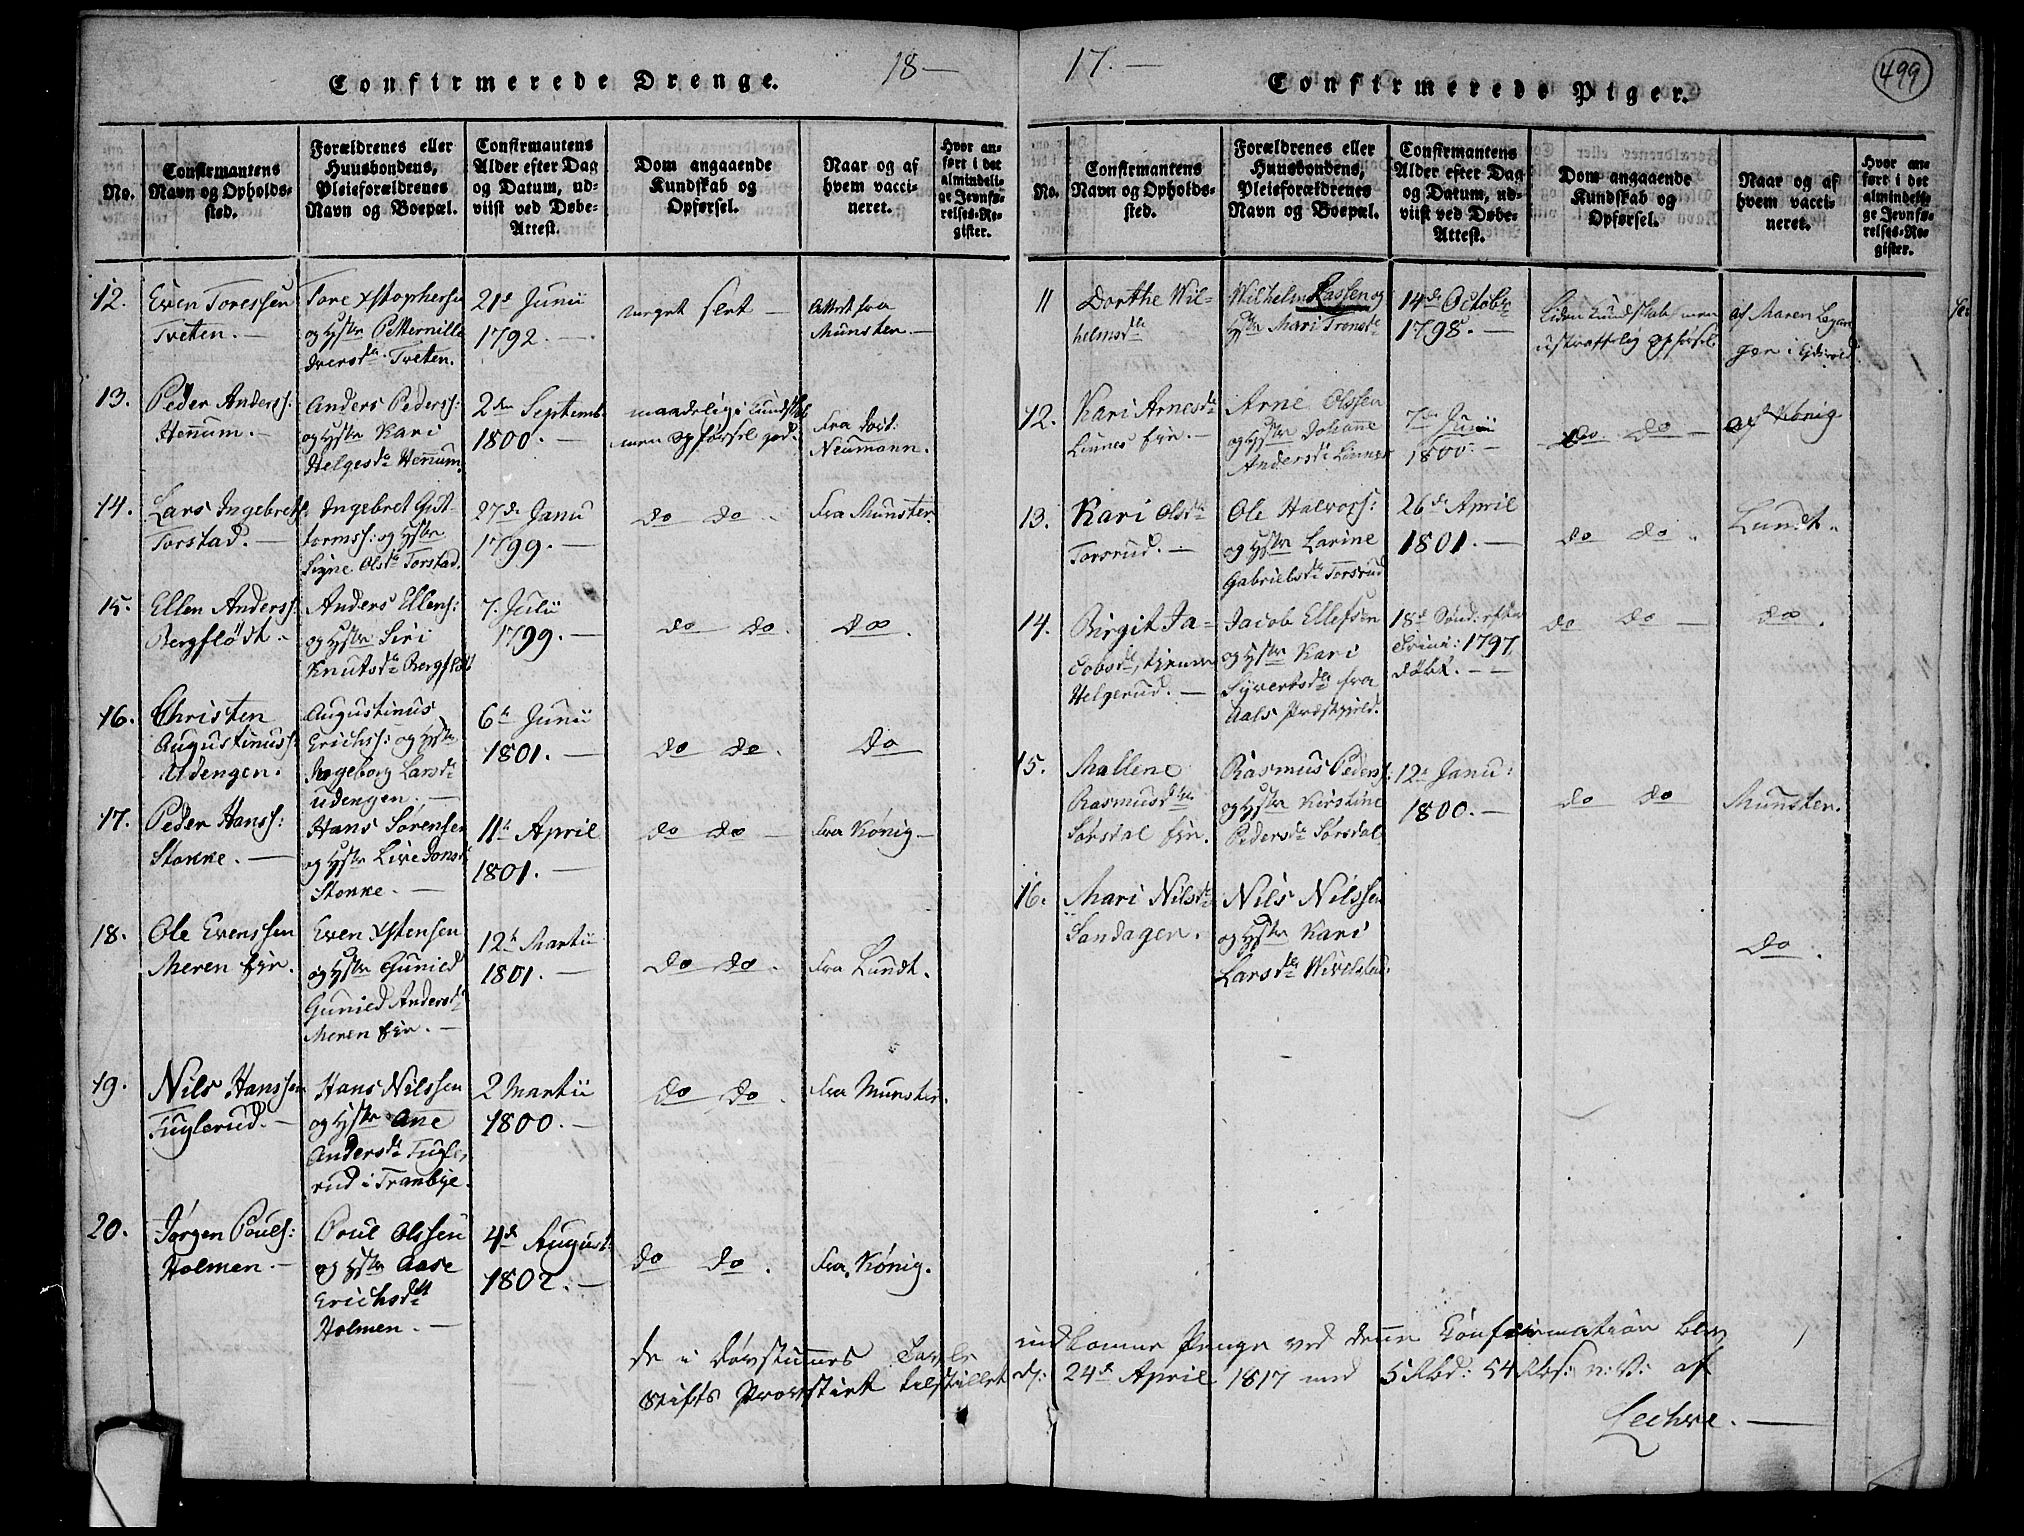 18 —
Confirmerede Drenge.
No.
Confirmantens
Navn og Opholds-
sted.
Forældrenes eller
Huusbondens,
Pleieforældrenes
Navn og Boepæl.
Confirmantens
Alder efter Dag
og Datum, ud-
viist ved Døbe-
Attest.
Dom angaaende
Kundskab og
Opførsel.
Naar og af
hvem vacci-
neret.
Hvor an-
ført i det
almindeli-
ge Jevnfø-
relses-Re-
gister.
12.
Even Toressen
Tveten. —
Tore Xstophersen
og Hstr Petternille
Iversdr Tveten.
21de Junii
1792. —
meget slet —
Attest fra
Münster. —
13.
Peder Anderss:
Hennum. —
Anders Pederss:
og Hstr Kari
Helgesdr Hennum.
2den Septemb.
1800. —
maadelig i Kundskab
men Opførsel god.
Fra
Neumann.
14.
Lars Ingebretss:
Torstad. —
Ingebret Gut-
tormss: og Hstr
Signe Olsdr Torstad.
27de Janu
1799. —
do do.
Fra Münster.
15.
Ellen Anderss:
Bergflödt.
Anders Ellens:
og Hstr Siri
Knutsdr Bergflödt
7. Julii
1799. —
do do.
do.
16.
Christen
Augustinuss:
Udengen.
Augustinus
Erichss: og Hstr
Ingeborg Larsdr
udengen. —
6te Junii
1801. —
do do.
do
17.
Peder Hanss:
Stokke. —
Hans Sørensen
og Hstr Live Jonsdr
Stokke. —
11te April
1801. —
do do —
Fra Kønig. —
18.
Ole Evenssen
Meren Eje.
Even Xstensen
og Hstr Gunild
Gunild Andersdr
Meren Eje. —
12te Martii
1801. —
do do.
Fra Lundt.
19.
Nils Hanssen
Fuglerud. —
Hans Nilssen
og Hstr Anne
Andersdr Fugle,
rud i Tranbye.
2 Martii
1800. —
do do.
Fra Münster.
20.
Jørgen Pouls:
Holmen. —
Poul Olssen
og Hstr Aase
Erichsdtr
Holmen. —
4de August:
1802. —
do do.
Fra Kønig.
17. —
499
Confirmerede Piger.
No.
Confirmantens
Navn og Opholds-
sted.
Forældrenes eller
Huusbondens,
Pleieforældrenes
Navn og Boepæl.
Confirmantens
Alder efter Dag
og Datum, ud-
viist ved Døbe-
Attest.
Dom angaaende
Kundskab og
Opførsel.
Naar og af
hvem vacci-
neret.
Hvor an-
ført i det
almindeli-
ge Jevnfø-
relses-Re-
gister.
11
Dorthe Wil-
helmsdr
Wilhelm Lassen og
Hstr Mari Tronsdr
14de Octobr
1798. —
Liden Kundskab men
ustraffelig Opførsel
af Maren
i
12.
Kari Arnesdr
Linnes Eje. —
Arne Olssen
og Hstr Johanne
Andersdr Linnes
7de Junii
1800. —
do do —
af König
13.
Kari Olsdr
Torsrud. —
Ole Halvors:
og Hstr Larine
Gabrielsdr Torsrud
26de April
1801. —
do do.
Lundt.
14.
Birgit Ja-
cobsdr,
Helgerud. —
Jacob Ellefsen
og Hstr Kari
Syvertsdr fra
Aals Præstgjeld.
18de Sønd: efter
Trini: 1797
döbt. —
do do —
do.
15.
Mallene
Rasmusdtr
Sørsdal Eje.
Rasmus Peders:
og Hstr Kirstine
Pedersdr Sørsdal.
12te Janu:
1800. —
do do
Münster.
16.
Mari Nilsdr
Sandagen.
Nils Nilssen
og Hstr Kari
Larsdr
do.
de i Døvstummes Casse indkomne Penge ved denne Confirmation blev
Stifts Provstiet tilstillet d: 24de April 1817 med 5 Rbd: 54 Rbs: n: V: af